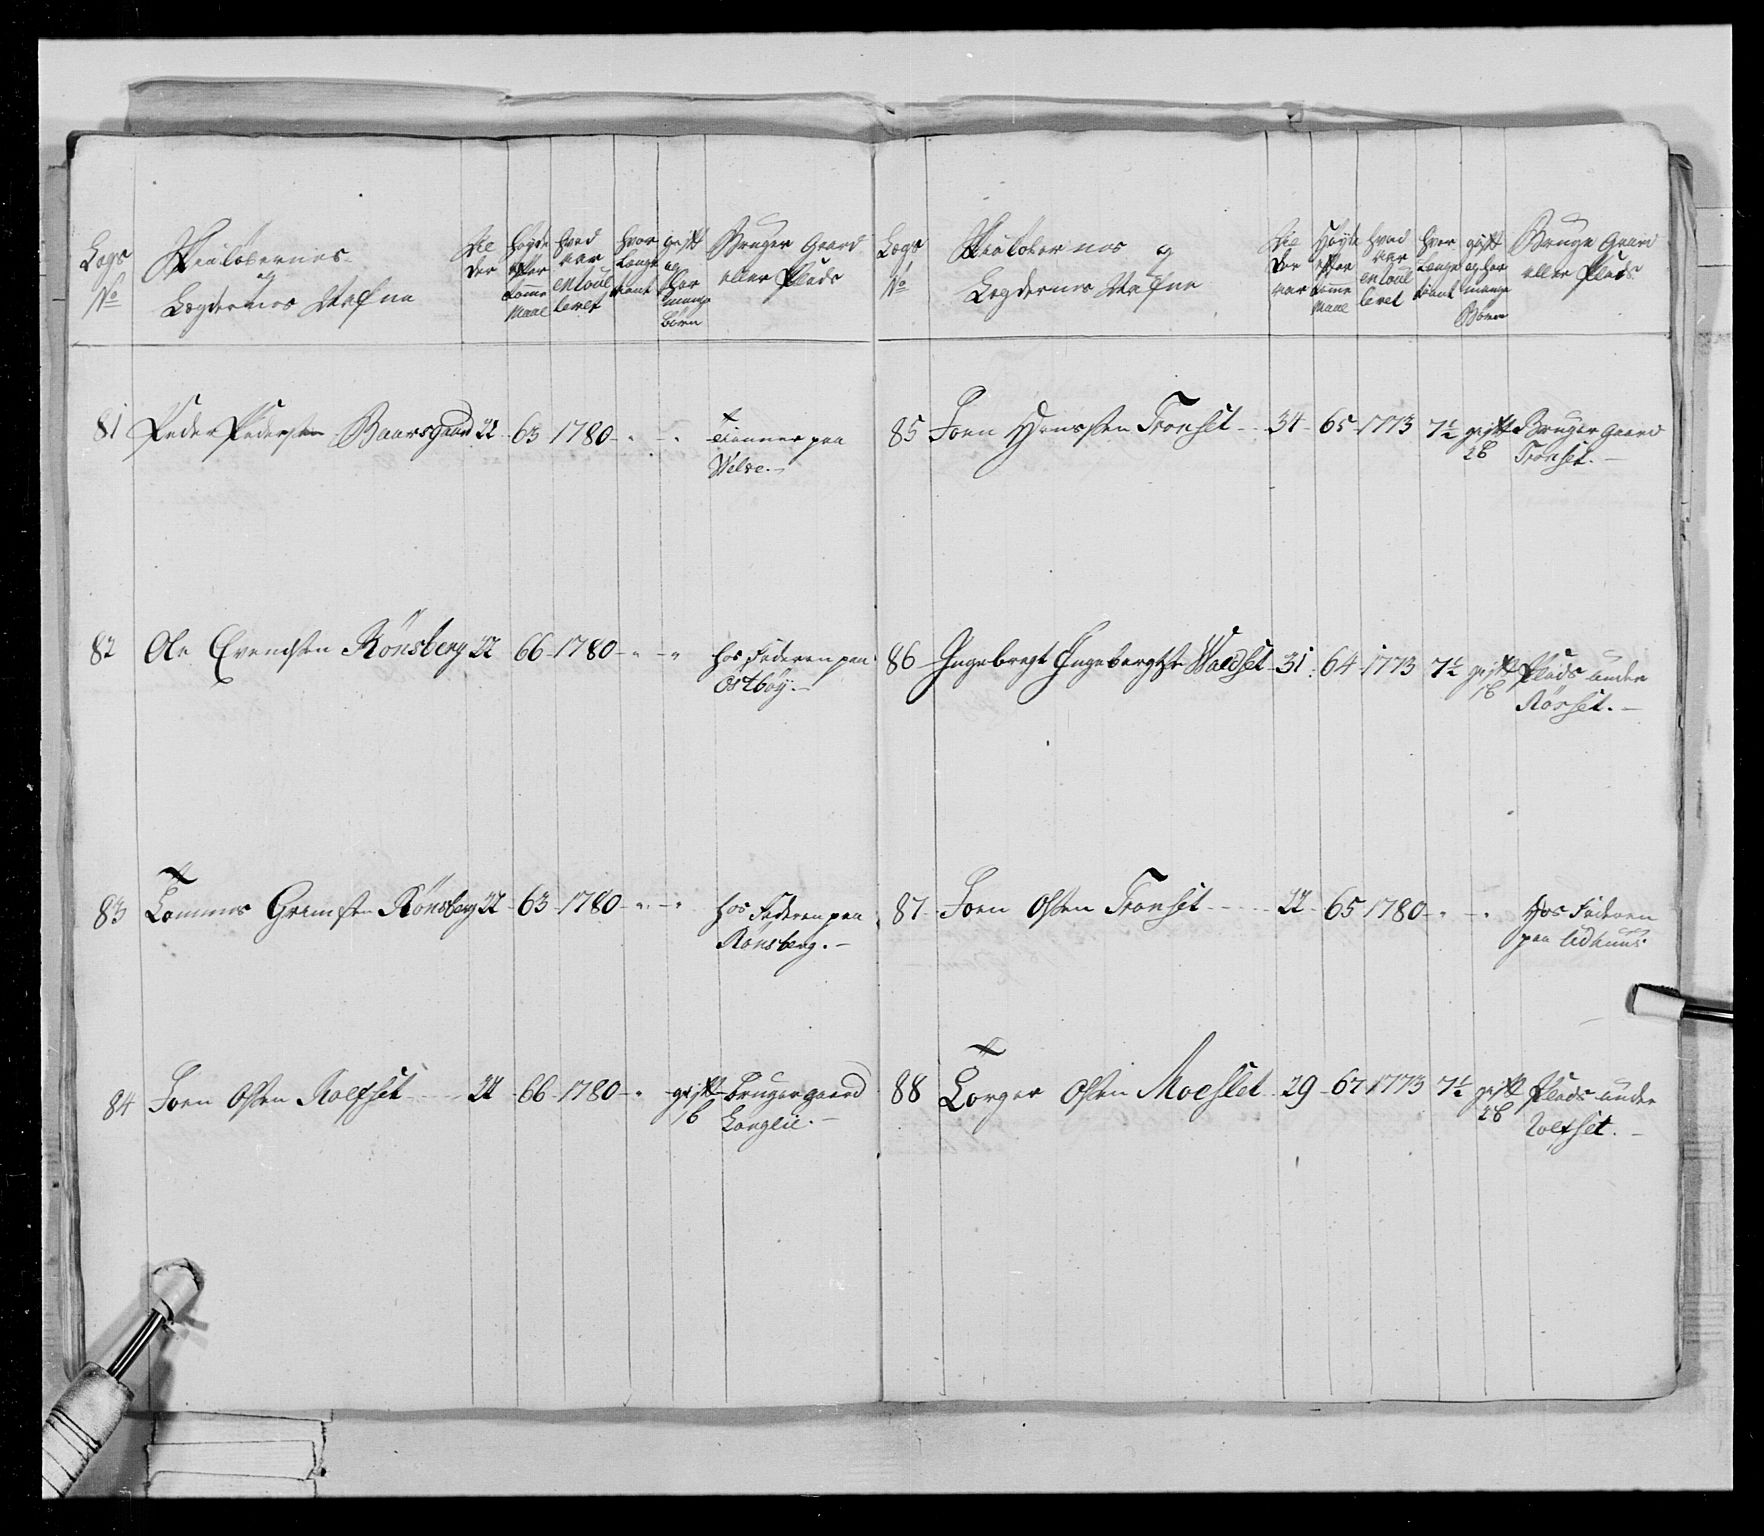 Legs
No
og
Legdernes Nafne
Al
der
Høyde
efter
Tomme
Maal
hvad
aar
enroul
leret
hvor
Længe
tiænt
gift
og
har
mange
børn
Bruger Gaard
eller Plads
81 Peder Pedersen Baarsgaard 22 - 63 - 1780 - " - "
Tienner paa
Welve. -
82 Ole Evendsen Rönsberg 22 66 - 1780 - " - "
hos Faderen paa
Ostbøy. -
83 Tommes Grimsen Rönsberg 22 - 63 - 1780 - " - "
hos Faderen paa
Ronsberg. -
84 Joen Olsen Rolfset - 22 - 66 - 1780 - " - gift
1 b
Bruger gaard
Langlie. -
Legs
No
og
Legdernes Nafne
Al
der
aar
Høyde
efter
Tomme
Maal
hvad
aar
enroul
leret
hvor
Længe
tiænt
gift
og har
mange
Børn
Bruge Gaard
eller Plads
85 Joen Hansen Tronset - 34 - 65 - 1773 7½ gift
2 b
Bruger Gaard
Tronset. -
86 Ingebregt Ingebregtse Waldset - 31 - 64 - 1773 7½ gift
1 b
Plads under
Rørset. -
87 Joen Olsen Tronset - - 22 - 65 1780 - " - "
Hos Faderen
paa Udhuus
88 Torger Olsen Moeslet 29 - 67 1773 7½ gift
2 b
Plads under
Rolfset. -